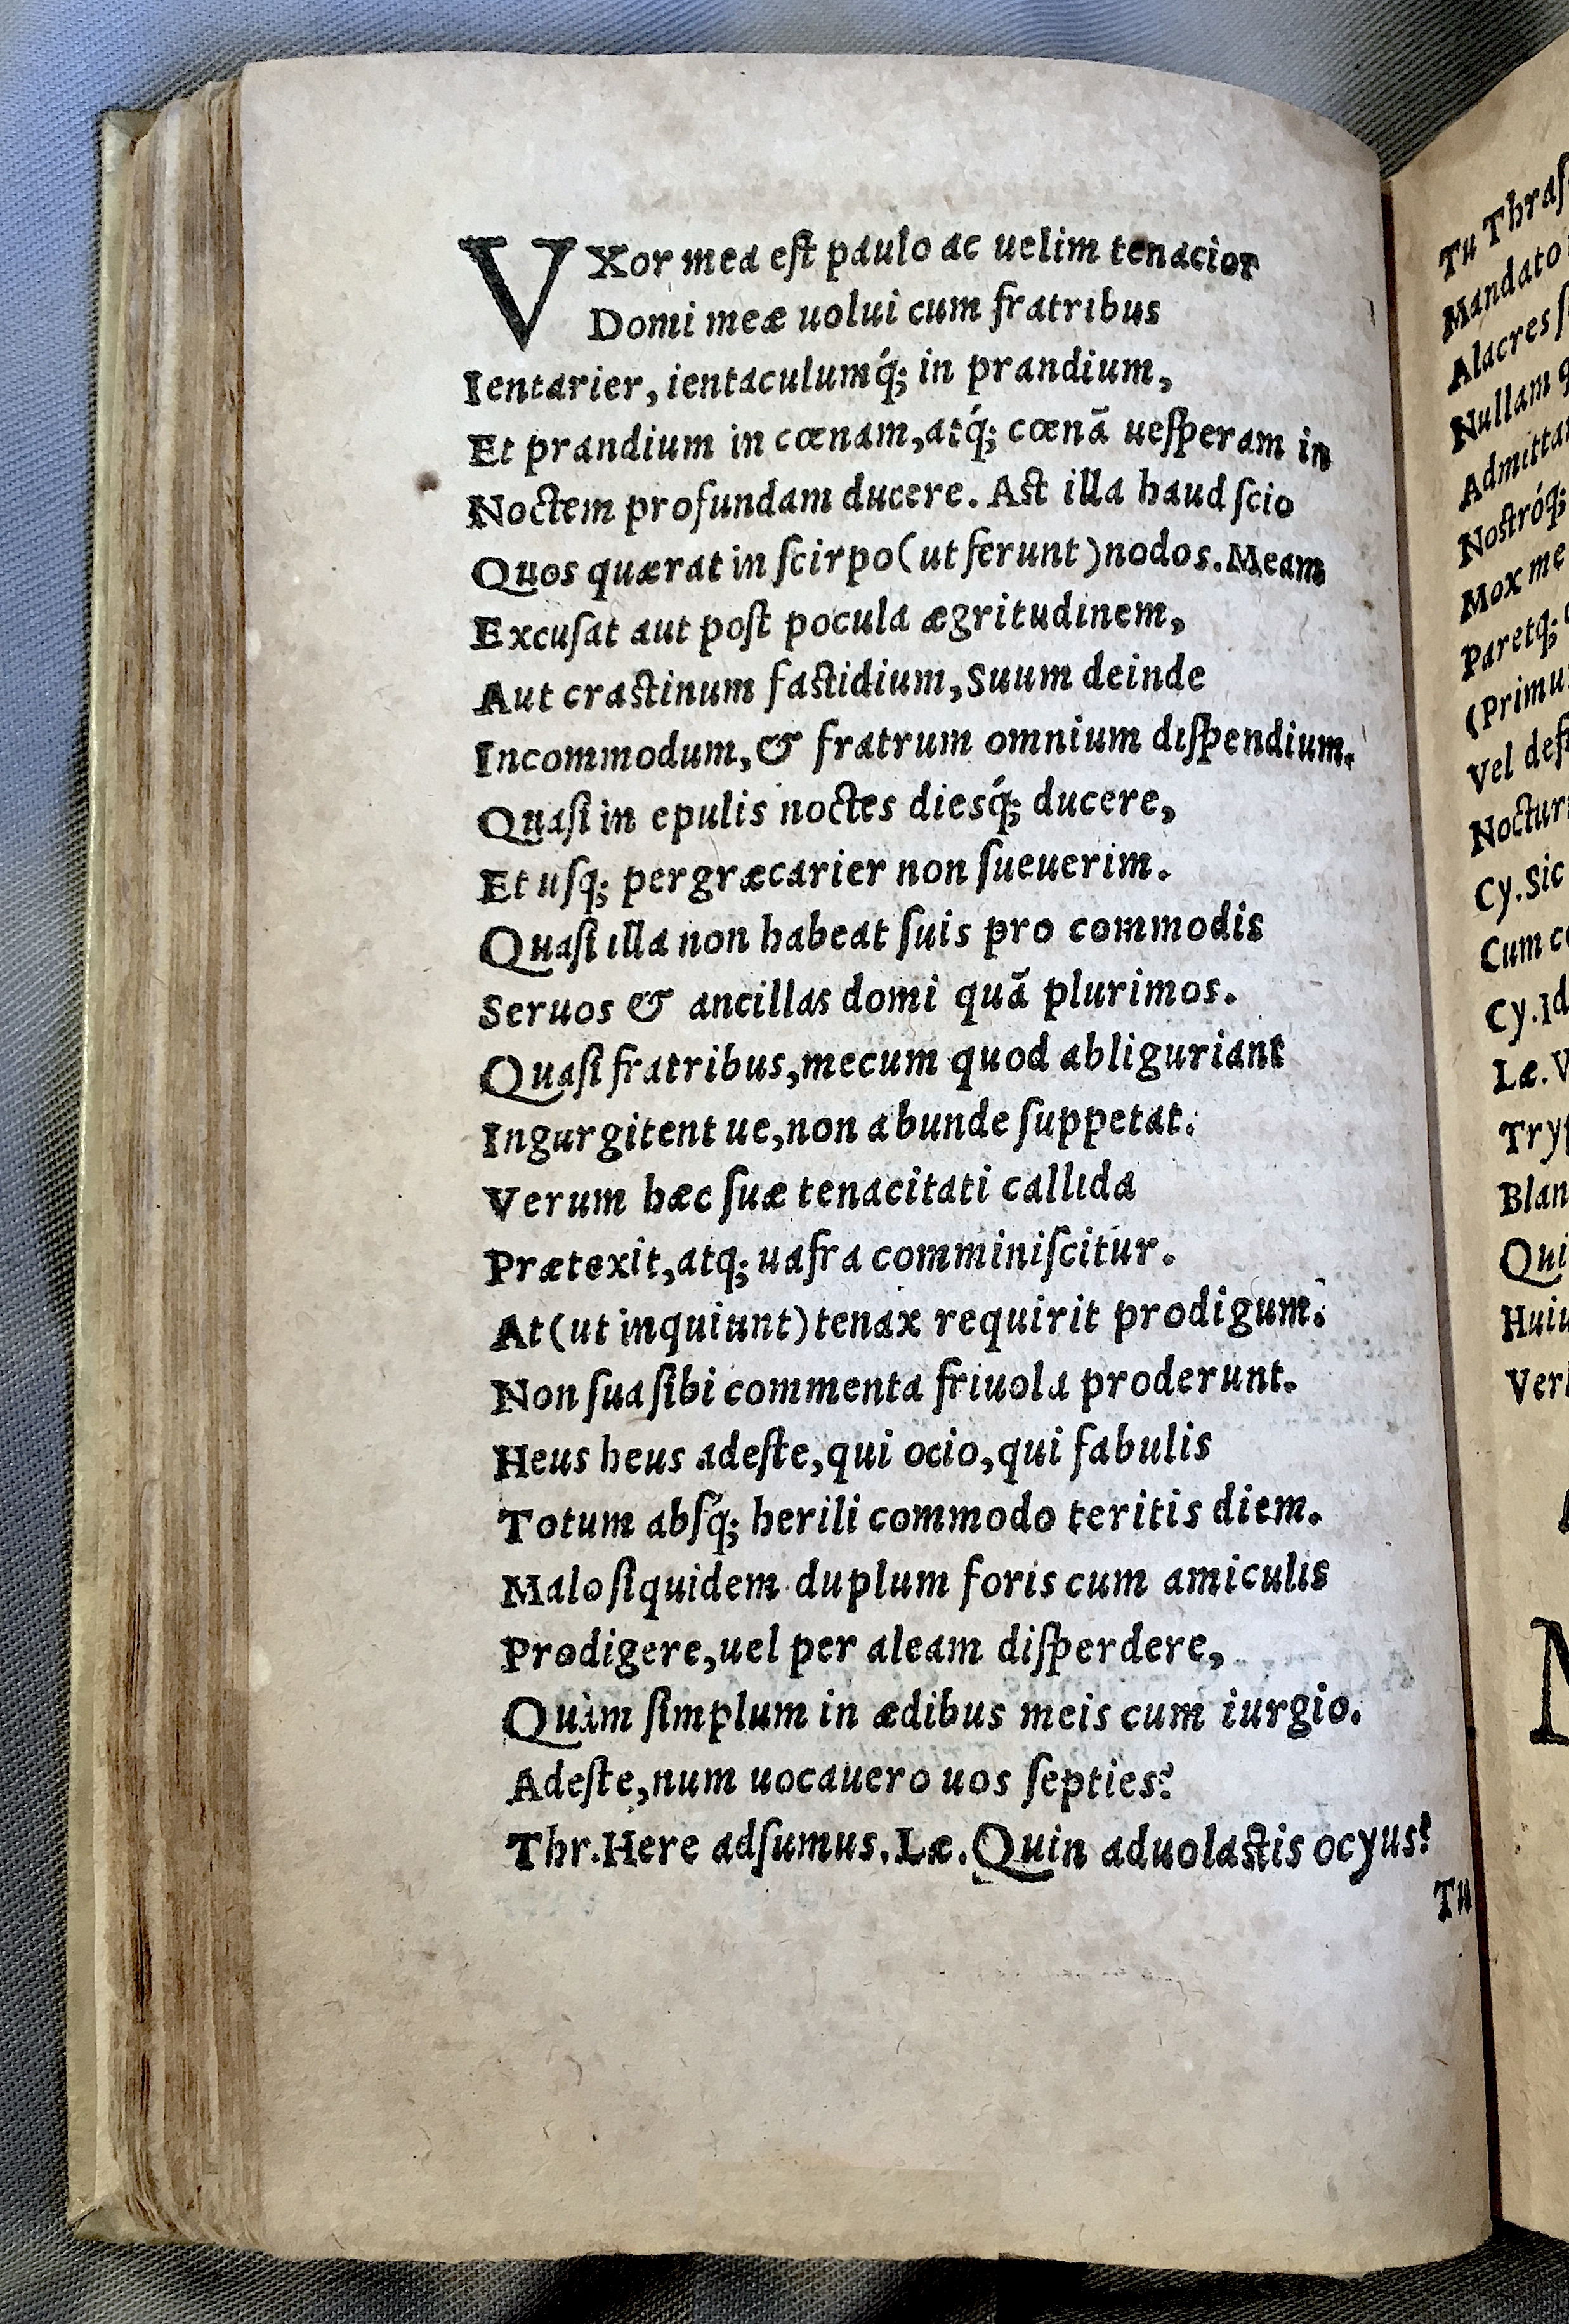 VXor mea eſt paulo ac uelim tenacior
Domi meæ uolui cum fratribus
Ientarier, ientaculumq́; in prandium,
Et prandium in cœnam, atq́; cœnã ueſperam in
Noctem profundam ducere. Aſt illa haud ſcio
Quos quærat in ſcirpo (ut ferunt) nodos. Meam
Excuſat aut poſt pocula ægritudinem,
Aut craſtinum faſtidium, Suum deinde
Incommodum, & fratrum omnium diſpendium.
Quaſi in epulis noctes diesq́; ducere,
Et uſq; pergræcarier non ſueuerim.
Quaſi illa non habeat ſuis pro commodis
Seruos & ancillas domi quã plurimos.
Quaſi fratribus, mecum quod abliguriant
Ingurgitent ue, non abunde ſuppetat:
Verum hæc ſuæ tenacitati callida
Prætexit, atq; uafra comminiſcitur.
At (ut inquiunt) tenax requirit prodigum:
Non ſua ſibi commenta friuola proderunt.
Heus heus adeſte, qui ocio, qui fabulis
Totum abſq́; herili commodo teritis diem.
Malo ſiquidem duplum foris cum amiculis
Prodigere, uel per aleam diſperdere,
Quàm ſimplum in ædibus meis cum iurgio.
Adeſte, num uocauero uos ſepties?
Thr. Here adſumus. Læ. Quin aduolaſtis ocyus?
Tu
Tu
Mandato
Alacres
Nullam
Noſtróq;
Mox me
Paretq;
Vel
Cy. Sic
Cum
Cy. Id
Læ.